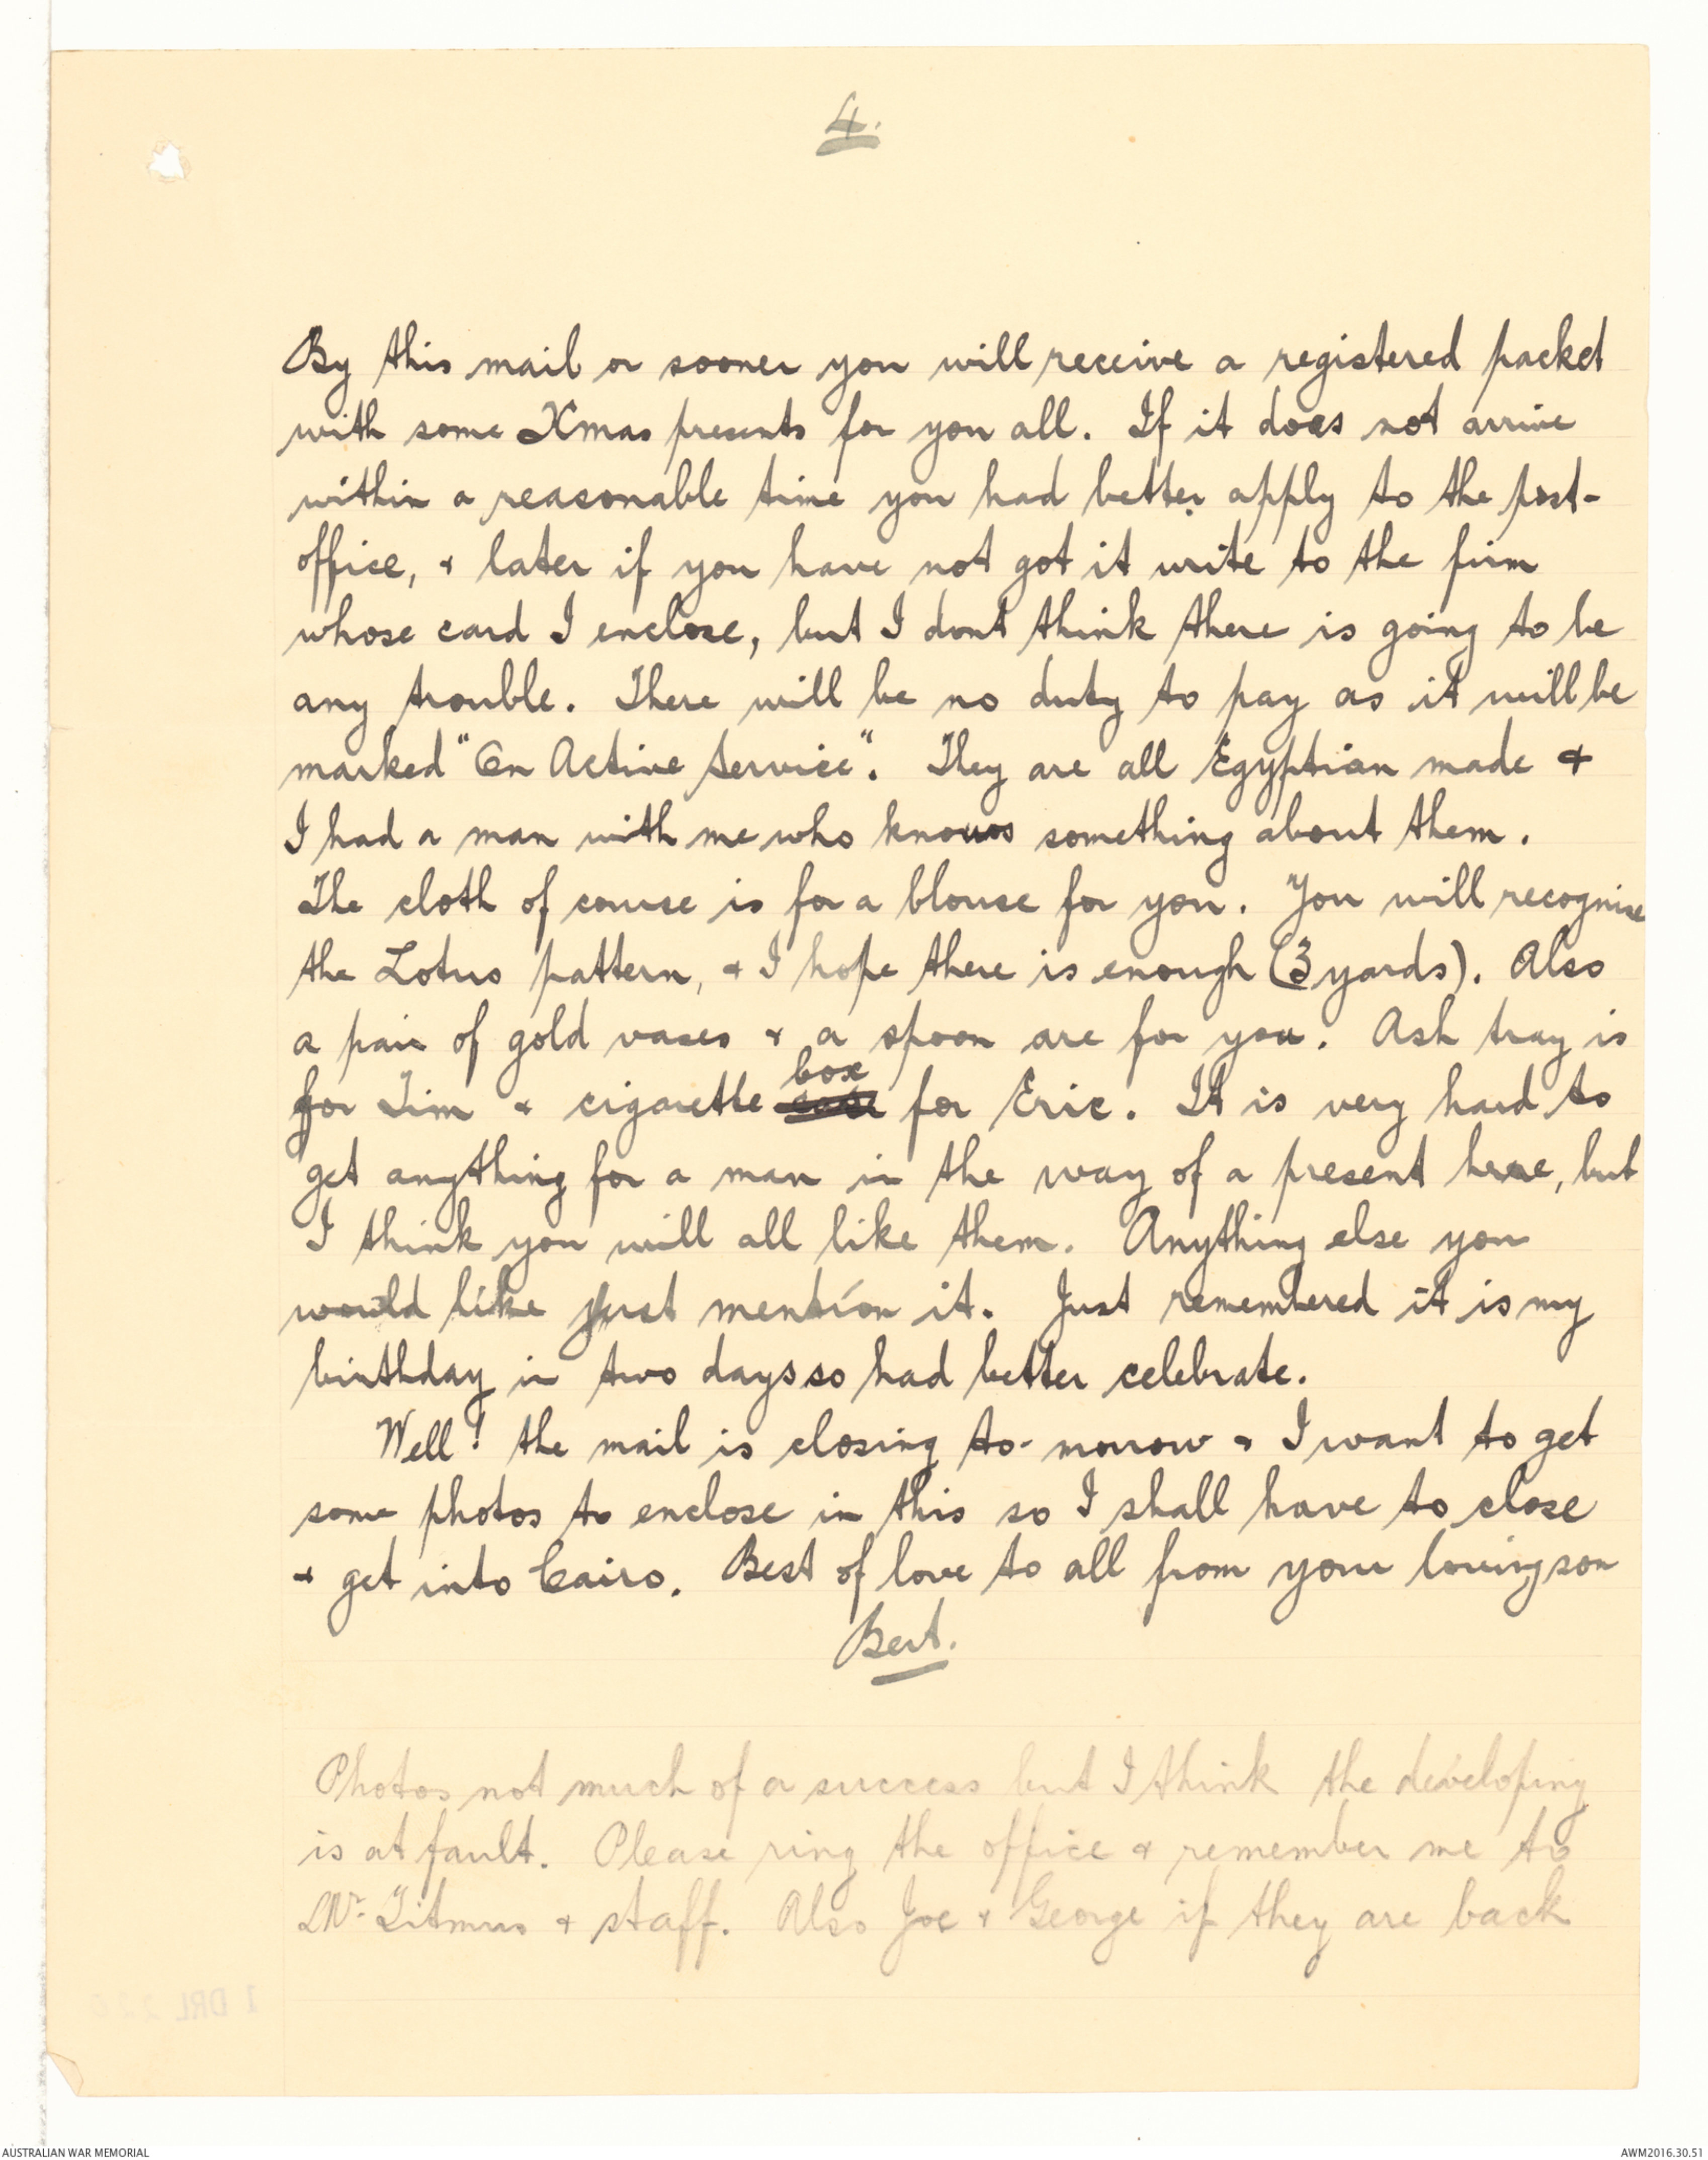 4.
By this mail or sooner you will receive a registered packet
with some Xmas presents for you all. If it does not arrive
within a reasonable time you had better apply to the post-
office, & later if you have not got it write to the firm
whose card I enclose, but I dont think there is going to be
any trouble. There will be no duty to pay as it will be
marked "On Active Service". They are all Egyptian made &
I had a man with me who knows something about them.
The cloth of course is for a blouse for you. You will recognise
the Lotus pattern, & I hope there is enough (3 yards). Also
a pair of gold vases & a spoon are for you. Ash tray is
box
for Tim & cigarette case for Eric. It is very hard to
get anything for a man in the way of a present here, but
I think you will all like them. Anything else you
would like just mention it. Just remembered it is my
birthday in two days so had better celebrate.
Well! the mail is closing to-morrow & I want to get
some photos to enclose in this so I shall have to close
& get into Cairo. Best of love to all from your loving son
Bert.
Photos not much of a success but I think the developing
is at fault. Please ring the office & remember me to
Mr. Titmus & staff. Also Joe & George if they are back
1 DRL
AUSTRALIAN WAR MEMORIAL
AWM2016.30.51